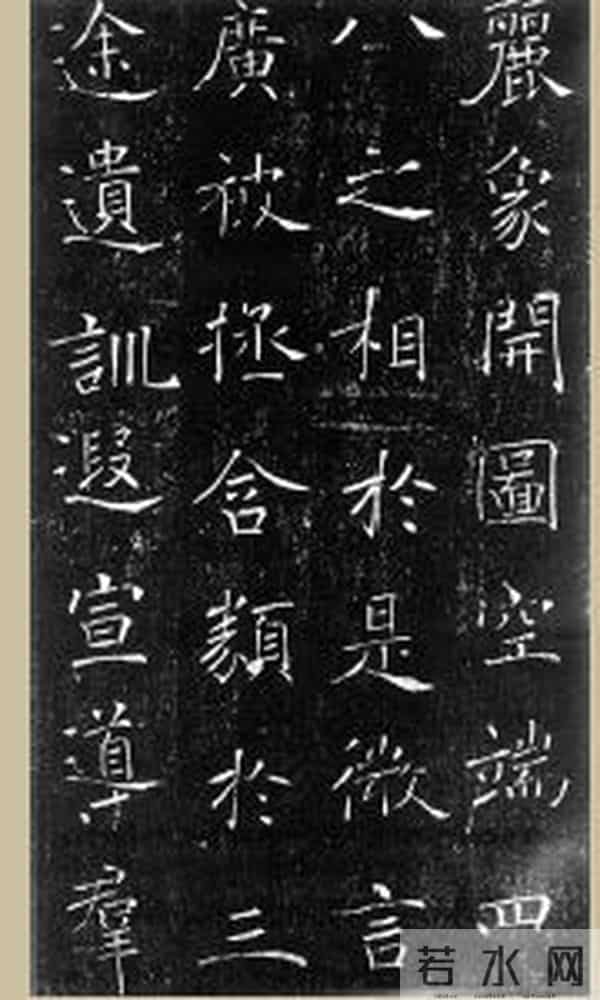 麗象開圖空端四
八之相於是微言
廣被拯含類於三
途遺訓遐宣導羣
若水网